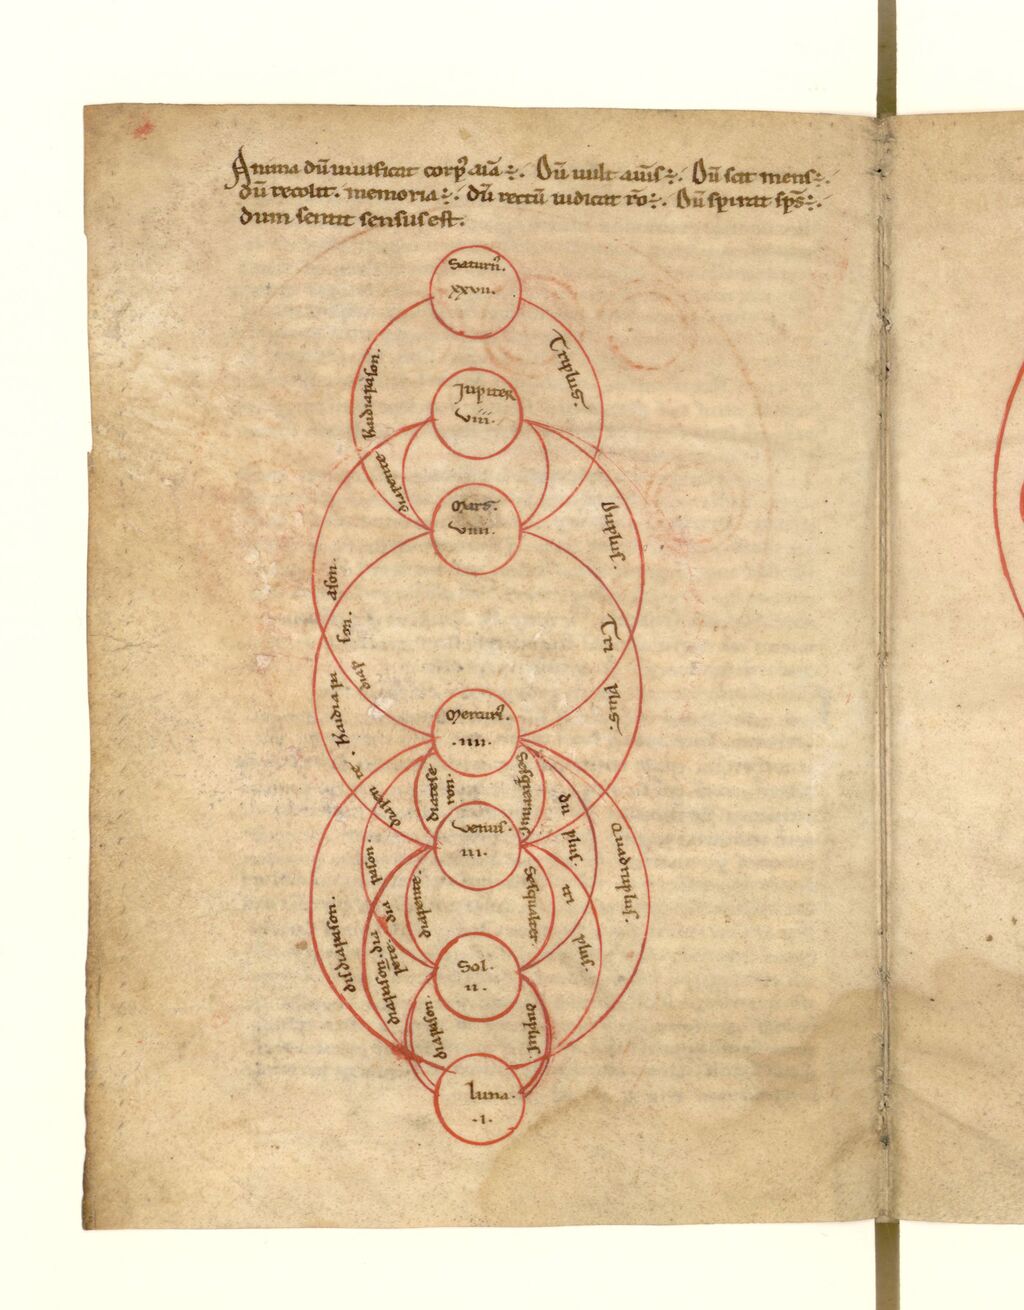 Anima dū uiuificat corpꝰ aīa ÷. Dū uult aīus ÷. Dū scit mens ÷.
dū recolit. memoria ÷. dū rectū iudicat rō ÷. Dū spirat sp̄s ÷.
dum sentit sensus est.
Saturnꝰ.
xxvii.
Triplus.
kaidiapason.
Jupiter
viii.
diapente
Mars.
viiii.
Duplus.
ason.
son.
Tri
diap
plus.
kaidiapa
Mercuriꝰ.
.iiii.
te.
diapen
diatesse
ron.
Sesqitertiꝰ.
du
plus.
Quadruplus.
Venus.
iii.
pason.
dia
diapente.
Sesqualter.
tri
plus.
disdiapason.
diapason. dia
pēte.
Sol.
ii.
diapason.
duplus.
Luna.
.i.